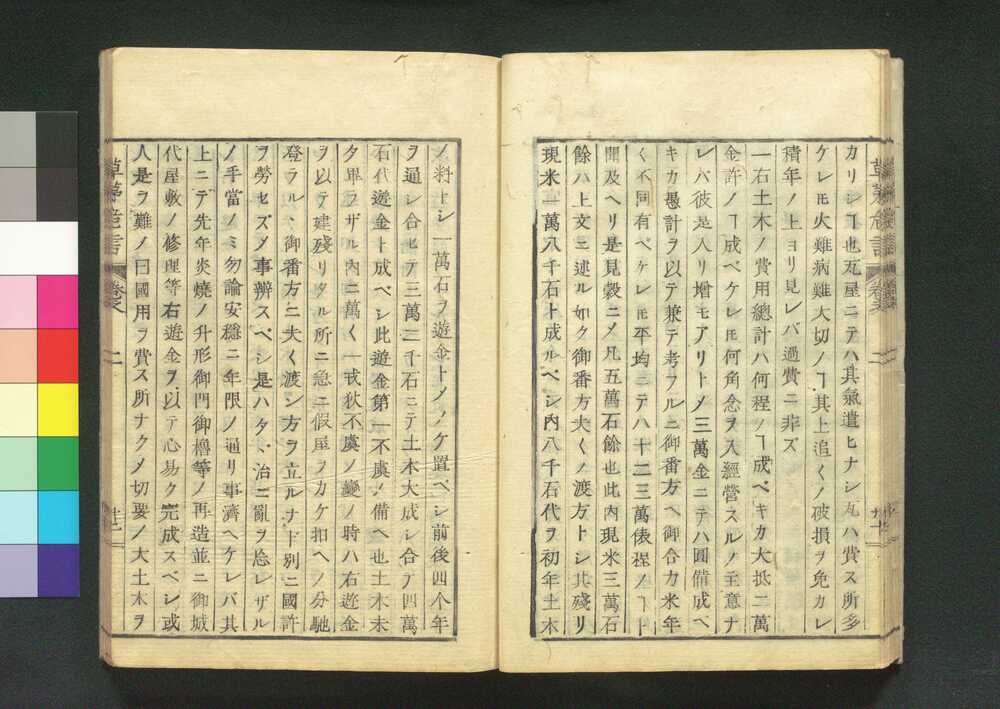 カリシヿ也瓦屋ニテハ其氣遣ヒナシ瓦ハ費ス所多
ケレモ火難病難大切ノヿ其上追くノ破損ヲ免カレ
積年ノ上ヨリ見レバ過費ニ非ズ
一右土木ノ費用總計ハ何程ノヿ成ベキカ大抵二萬
金許ノヿ成ベケレモ何角念ヲ入經營スルノ主意ナ
レバ彼是入リ增モアリトメ三萬金ニテハ圓備成ベ
キカ愚計ヲ以テ兼テ考フルニ御番方ヘ御合力米年
く不同有ベケレモ平均ニテ八十二三萬俵程ノヿト
聞及ヘリ是見穀ニメ凡五萬石餘也此內現米三萬石
餘ハ上文ニ述ル如ク御番方夫くノ渡方トシ其殘リ
現米一萬八千石ト成ルベシ內八千石代ヲ初年土木
ノ料トシ一萬石ヲ遊金トメノケ置ベシ前後四个年
ヲ通シ合セテ三萬二千石ニテ土木大成シ合テ四萬
石代遊金ト成ベシ此遊金第一不虞ノ備ヘ也土木未
タ畢ラザル內ニ萬く一戎狄不虞ノ變ノ時ハ右遊金
ヲ以テ建殘リタル所ニ急ニ假屋ヲカケ扣ヘノ分馳
登ラル丶御番方ニ夫く渡シ方ヲ立ルナド別ニ國許
ヲ勞セズメ事辨スベシ是ハタ丶治ニ亂ヲ忘レザル
ノ手當ノミ勿論安穩ニ年限ノ通リ事濟ヘケレバ其
上ニテ先年炎燒ノ升形御門御櫓等ノ再造並ニ御城
代屋敷ノ修理等右遊金ヲ以テ心易ク完成スベシ或
人是ヲ難ノ曰國用ヲ費ス所ナクメ切要ノ大土木ヲ
草茅危言
卷之
二